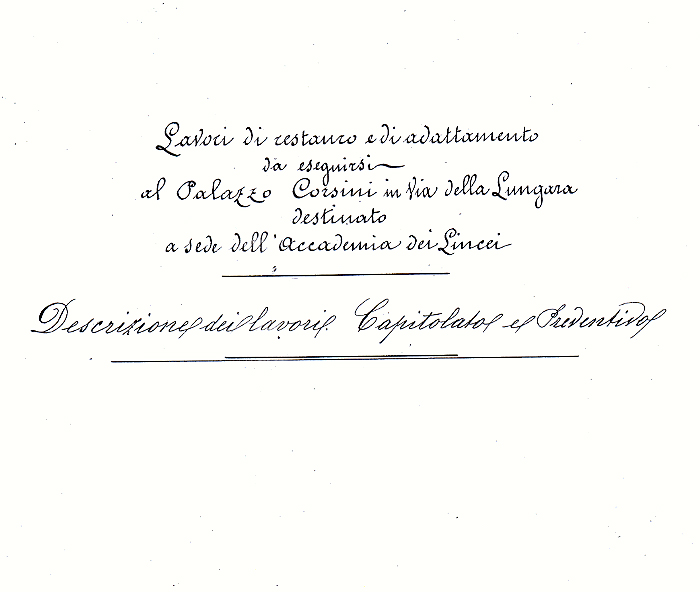 Lavori di restauro e di adattamento
da eseguirsi
al Palazzo Corsini in Via della Lungara
destinato
a sede dell'Accademia dei Lincei
Descrizione dei lavori. Capitolato e Preventivo